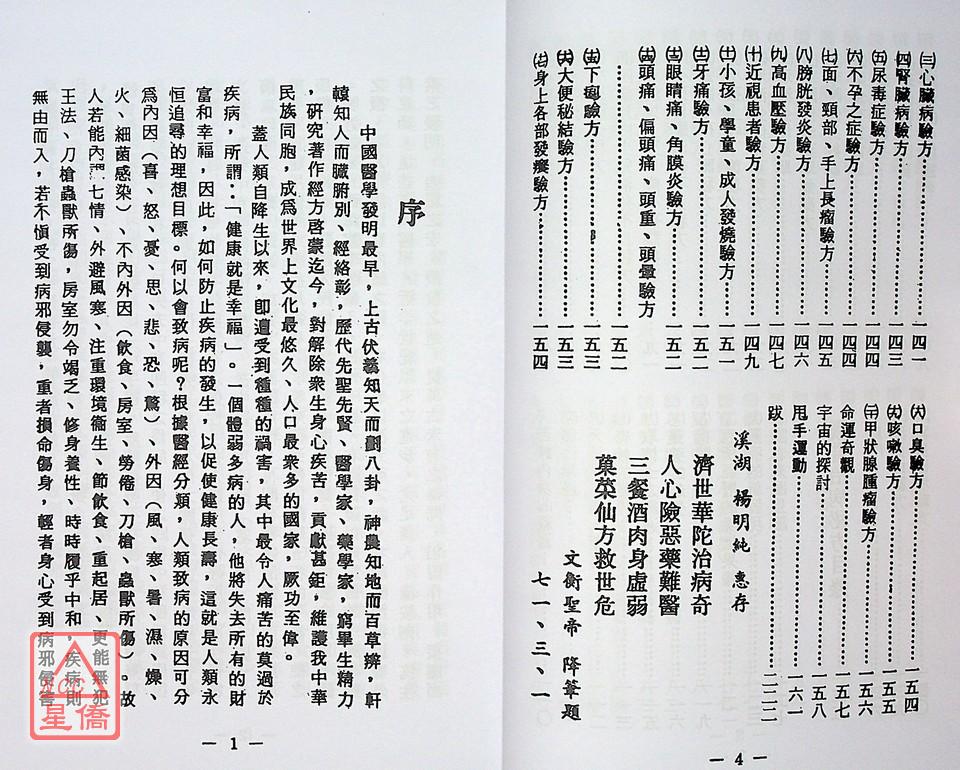 ㈢心臟病驗方……一四一
㈣腎臟病驗方……一四三
㈤尿毒症驗方……一四四
㈥不孕之症驗方……一四四
㈦面、頸部、手上長瘤驗方……一四五
㈧膀胱發炎驗方……一四六
㈨高血壓驗方……一四七
㈩近視患者驗方……一四九
㈩小孩、學童、成人發燒驗方……一五一
牙痛驗方……一五二
眼睛痛、角膜炎驗方……一五二
頭痛、偏頭痛、頭重、頭暈驗方
……一五二
下痢驗方……一五三
大便秘結驗方……一五三
身上各部發癢驗方……一五四
口臭驗方……一五四
咳嗽驗方……一五五
甲狀腺腫瘤驗方……一五六
命運奇觀……一五七
宇宙的探討……一五八
甩手運動……一六一
跋……二二二
溪湖 楊明純 惠存
濟世華陀治病奇
人心險惡藥難醫
三餐酒肉身虛弱
菓菜仙方救世危
文衡聖帝 降筆題
七一、三、一
— 4 —
序
中國醫學發明最早，上古伏羲知天而劃八卦，神農知地而百草辨，軒
轅知人而臟腑別、經絡彰，歷代先聖先賢、醫學家、藥學家，窮畢生精力
，研究著作經方啓蒙迄今，對解除衆生身心疾苦，貢獻甚鉅，維護我中華
民族同胞，成爲世界上文化最悠久、人口最衆多的國家，厥功至偉。
蓋人類自降生以來，卽遭受到種種的禍害，其中最令人痛苦的莫過於
疾病，所謂：「健康就是幸福」。一個體弱多病的人，他將失去所有的財
富和幸福，因此，如何防止疾病的發生，以促使健康長壽，這就是人類永
恒追尋的理想目標。何以會致病呢？根據醫經分類，人類致病的原因可分
爲內因（喜、怒、憂、思、悲、恐、驚）、外因（風、寒、暑、濕、燥、
火、細菌感染）、不內外因（飲食、房室、勞倦、刀槍、蟲獸所傷）。故
人若能內調七情、外避風寒、注重環境衞生、節飲食、重起居、更能無犯
王法、刀槍蟲獸所傷，房室勿令竭乏、修身養性、時時履乎中和，疾病則
無由而入，若不愼受到病邪侵襲，重者損命傷身，輕者身心受到病邪侵害
— 1 —
NCC
星僑